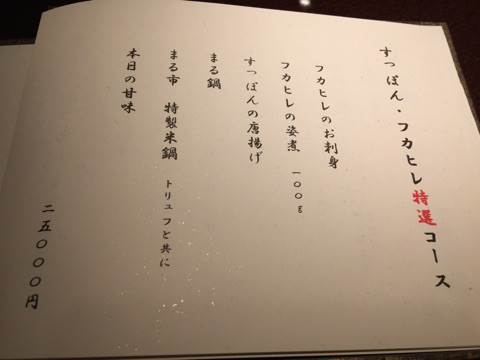 すっぽん・フカヒレ特選コース
フカヒレのお刺身
フカヒレの姿煮 一〇〇g
すっぽんの唐揚げ
まる鍋
まる市 特製米鍋 トリュフと共に
本日の甘味
二五〇〇〇円